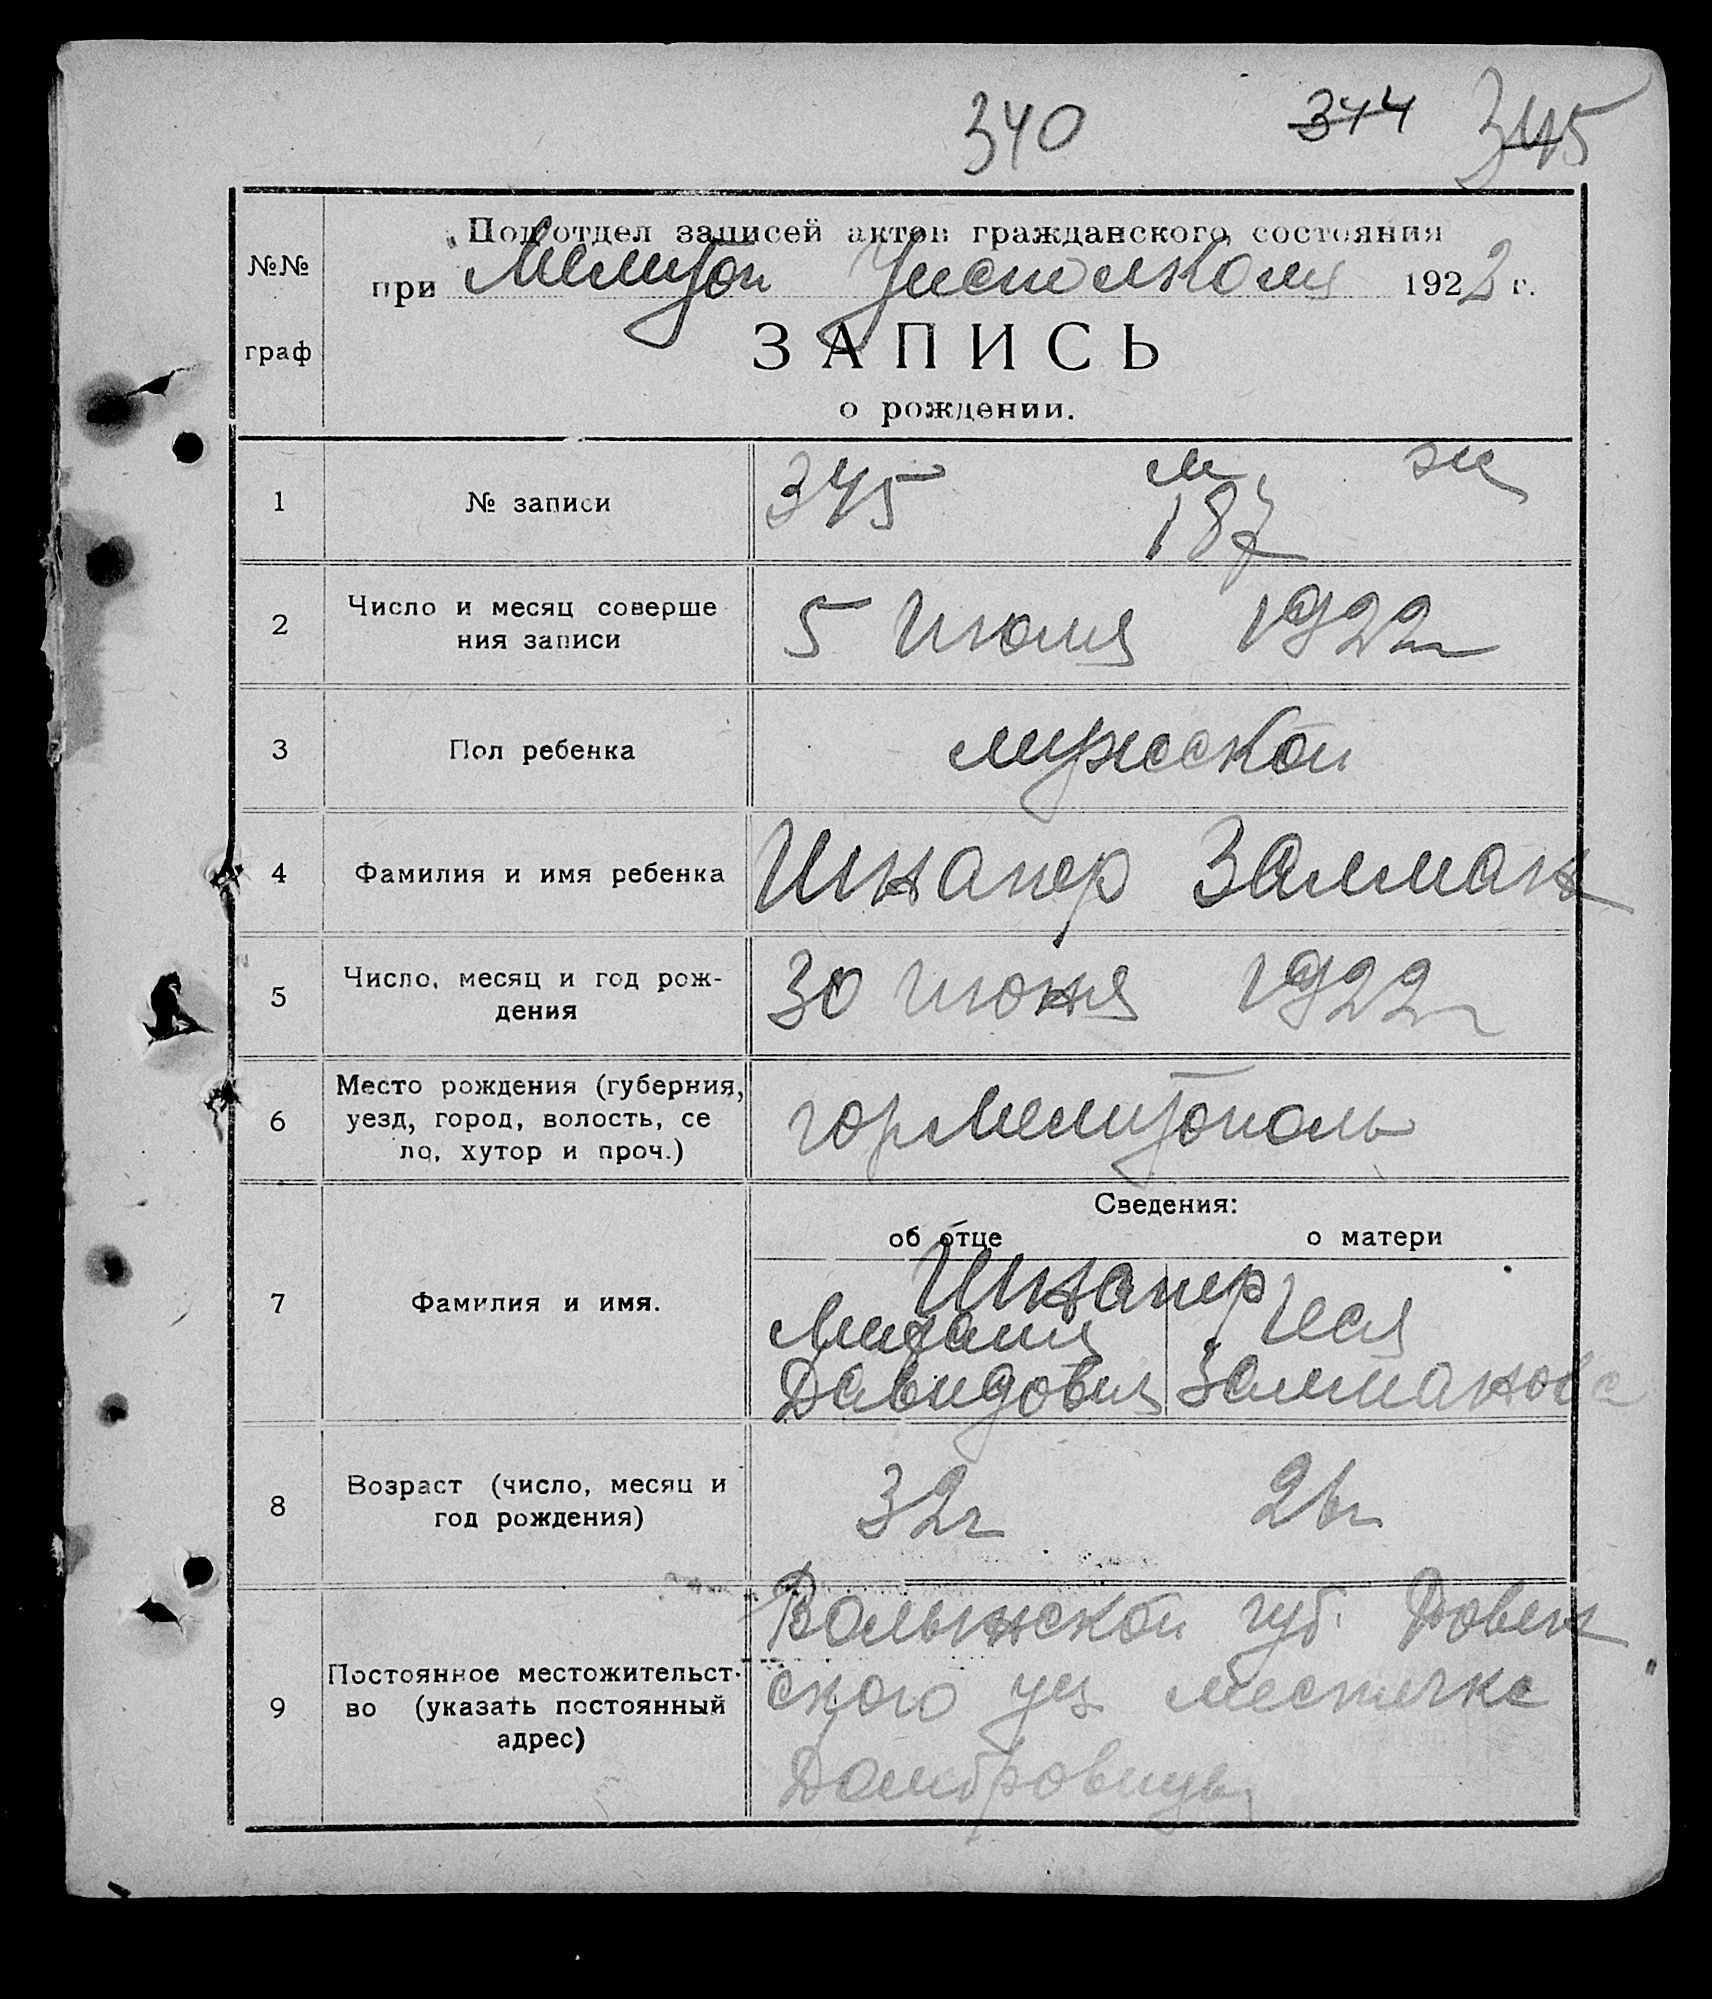 340 344 345
Подотдел записей актов гражданского состояния
при Мелитоп Уисполкома 1922 г.
№№
граф
ЗАПИСЬ
о рождении.
1 № записи 345 м 187 ж
2 Число и месяц соверше
ния записи 5 Июля 1922 г
3 Пол ребенка мужской
4 Фамилия и имя ребенка Шнапер Залман
5 Число, месяц и год рож-
дения 30 июня 1922 г
6 Место рождения (губерния,
уезд, город, волость, се
ло, хутор и проч.) гор Мелитополь
Сведения:
об отце о матери
7 Фамилия и имя. Шнапер
Михаил Геся
Давидович Залманова
8 Возраст (число, месяц и
год рождения) 32 г 26 г
9 Постоянное местожительст-
во (указать постоянный
адрес)
Волынской губ. Ровен
ского уез местечка
Домбровицы